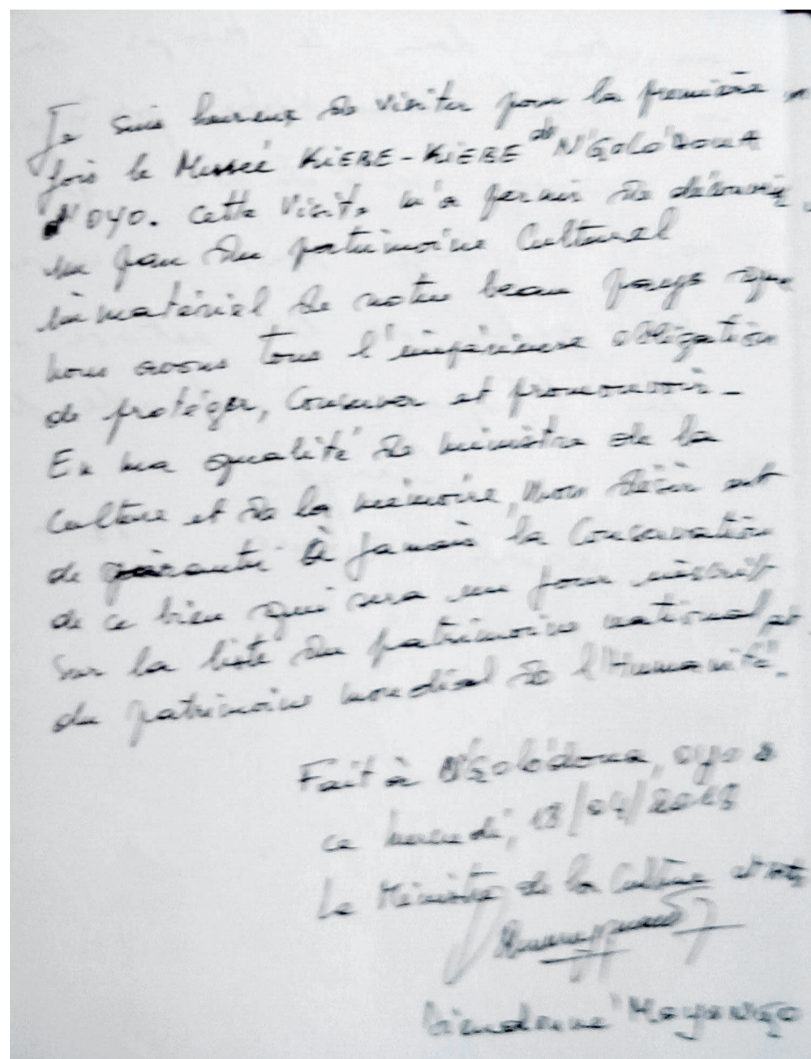 Je suis heureux de visiter pour la première
fois le Musée KIEBE-KIEBE de N'GOLO'DOUA
d'OYO. Cette visite m'a permis de découvrir
un pan du patrimoine Culturel
immatériel de notre beau pays que
nous avons tous l'impérieuse obligation
de protéger, Conserver et promouvoir_
En ma qualité de ministre de la
Culture et de la mémoire, mon désir est
de garantir à jamais la Conservation
de ce bien qui sera un jour inscrit
sur la liste du patrimoine national et
du patrimoine mondial de l'Humanité.
Fait à N'Golo'doua, oyo
ce mercredi, 18/04/2018
Le Ministre de la Culture et
Dieudonné Moyongo